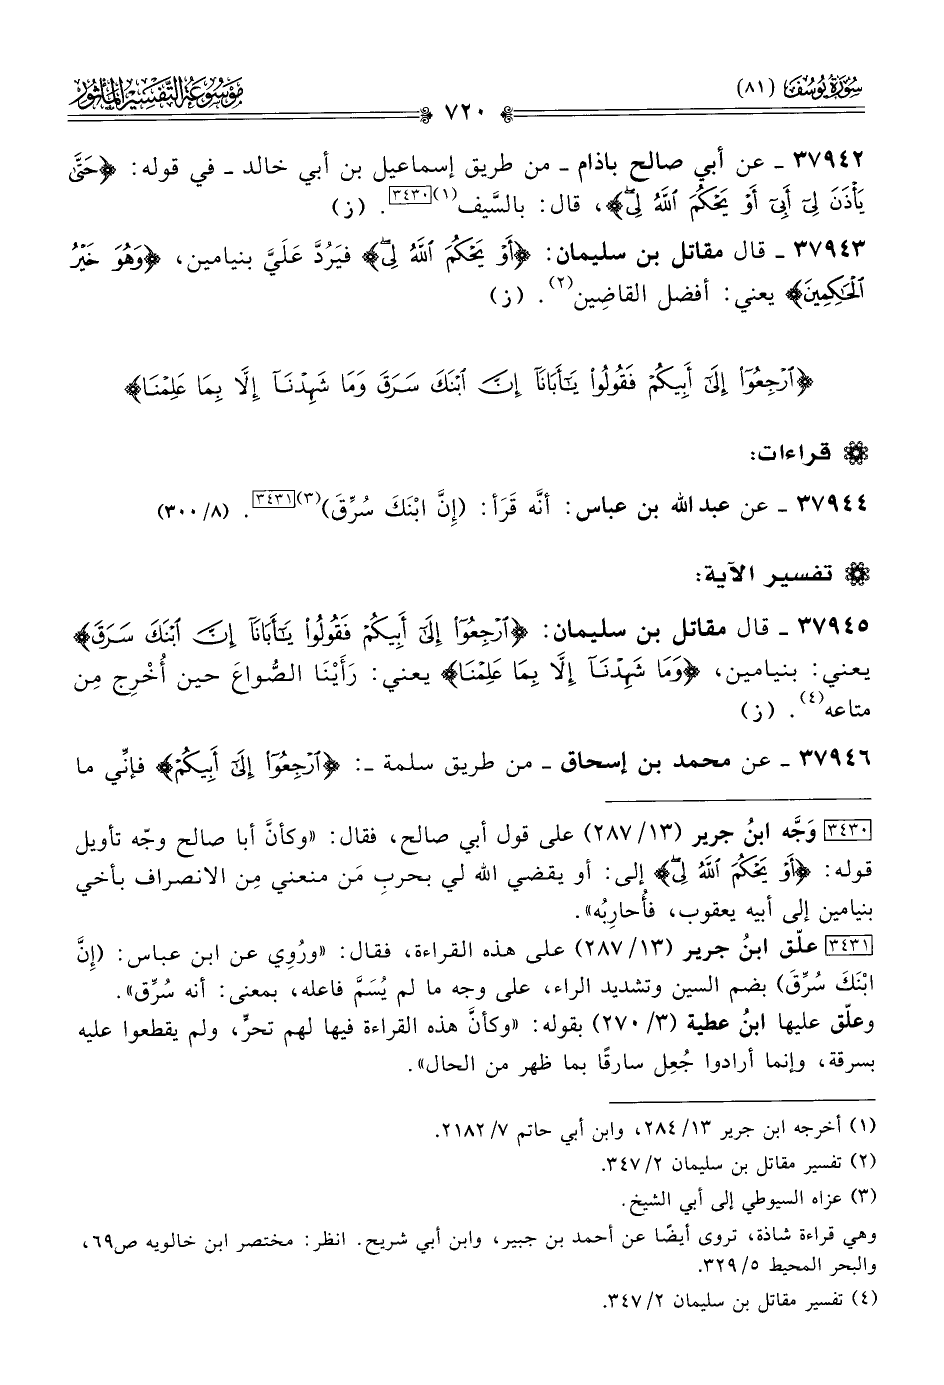 سُورَةُ يُوسُفَ (٨١)
مَوْسُوعَةُ التَّفْسِيرِ المَأْثُورِ
٧٢٠
٣٧٩٤٢ ـ عن أبي صالح باذام ـ من طريق إسماعيل بن أبي خالد ـ في قوله: ﴿حَتَّىٰ
يَأْذَنَ لِىٓ أَبِىٓ أَوْ يَحْكُمَ ٱللَّهُ لِىۖ﴾، قال: بالسَّيف(١)[٣٤٣٠]. (ز)
٣٧٩٤٣ ـ قال مقاتل بن سليمان: ﴿أَوْ يَحْكُمَ ٱللَّهُ لِىۖ﴾ فيَرُدَّ عَلَيَّ بنيامين، ﴿وَهُوَ خَيْرُ
ٱلْحَٰكِمِينَ﴾ يعني: أفضل القاضِين(٢). (ز)
﴿ٱرْجِعُوٓا۟ إِلَىٰٓ أَبِيكُمْ فَقُولُوا۟ يَٰٓأَبَانَآ إِنَّ ٱبْنَكَ سَرَقَ وَمَا شَهِدْنَآ إِلَّا بِمَا عَلِمْنَا﴾
قراءات:
٣٧٩٤٤ ـ عن عبد الله بن عباس: أنَّه قَرَأ: (إِنَّ ابْنَكَ سُرِّقَ)(٣)[٣٤٣١]. (٨/ ٣٠٠)
تفسير الآية:
٣٧٩٤٥ ـ قال مقاتل بن سليمان: ﴿ٱرْجِعُوٓا۟ إِلَىٰٓ أَبِيكُمْ فَقُولُوا۟ يَٰٓأَبَانَآ إِنَّ ٱبْنَكَ سَرَقَ﴾
يعني: بنيامين، ﴿وَمَا شَهِدْنَآ إِلَّا بِمَا عَلِمْنَا﴾ يعني: رَأَيْنَا الصُّواعَ حين أُخْرِج مِن
متاعه(٤). (ز)
٣٧٩٤٦ ـ عن محمد بن إسحاق ـ من طريق سلمة ـ: ﴿ٱرْجِعُوٓا۟ إِلَىٰٓ أَبِيكُمْ﴾ فإنِّي ما
[٣٤٣٠] وَجَّه ابنُ جرير (١٣/ ٢٨٧) على قول أبي صالح، فقال: «وكأنَّ أبا صالح وجّه تأويل
قوله: ﴿أَوْ يَحْكُمَ ٱللَّهُ لِىۖ﴾ إلى: أو يقضي الله لي بحربِ مَن منعني مِن الانصراف بأخي
بنيامين إلى أبيه يعقوب، فأُحارِبُه».
[٣٤٣١] علّق ابنُ جرير (١٣/ ٢٨٧) على هذه القراءة، فقال: «ورُوِي عن ابن عباس: (إِنَّ
ابْنَكَ سُرِّقَ) بضم السين وتشديد الراء، على وجه ما لم يُسَمَّ فاعله، بمعنى: أنه سُرِّق».
وعلّق عليها ابنُ عطية (٣/ ٢٧٠) بقوله: «وكأنَّ هذه القراءة فيها لهم تحرٍّ، ولم يقطعوا عليه
بسرقة، وإنما أرادوا جُعِل سارقًا بما ظهر من الحال».
(١) أخرجه ابن جرير ١٣/ ٢٨٤، وابن أبي حاتم ٧/ ٢١٨٢.
(٢) تفسير مقاتل بن سليمان ٢/ ٣٤٧.
(٣) عزاه السيوطي إلى أبي الشيخ.
وهي قراءة شاذة، تروى أيضًا عن أحمد بن جبير، وابن أبي شريح. انظر: مختصر ابن خالويه ص٦٩،
والبحر المحيط ٥/ ٣٢٩.
(٤) تفسير مقاتل بن سليمان ٢/ ٣٤٧.